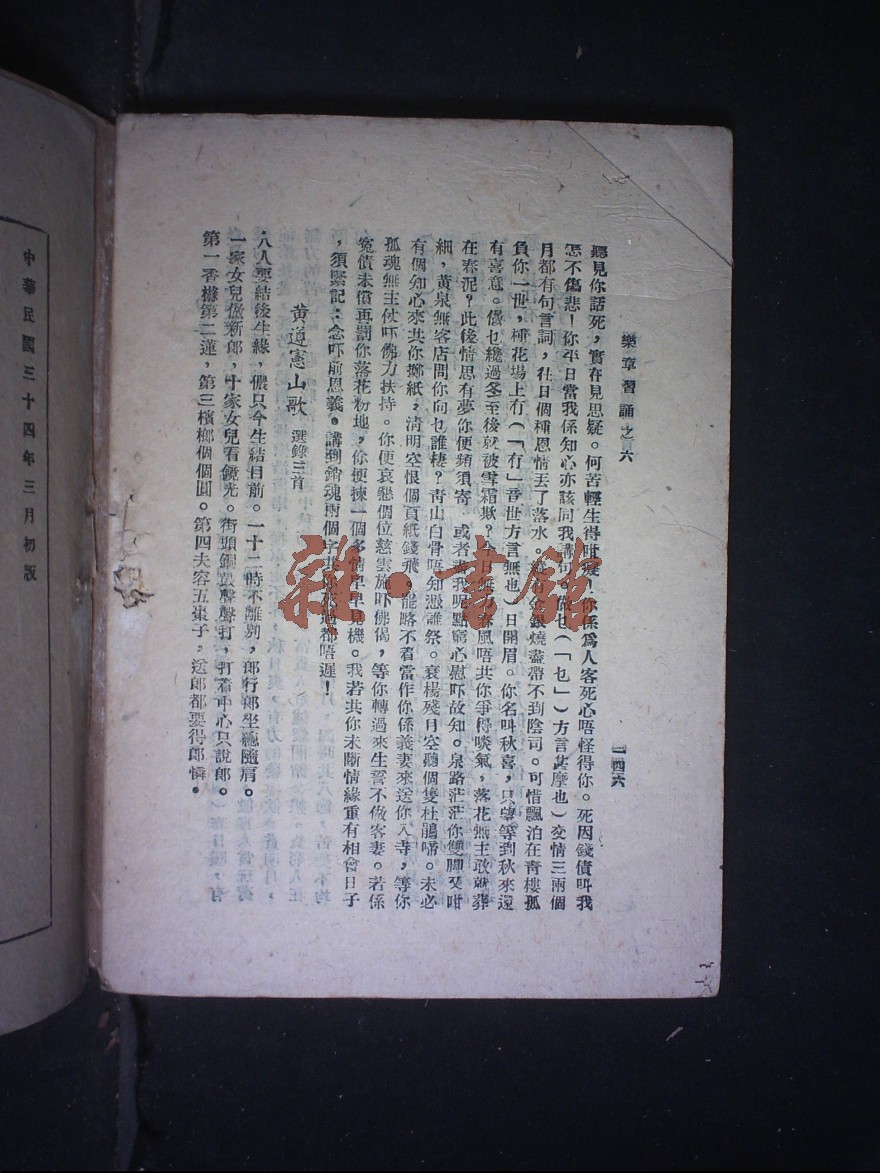 樂章習誦之六
二四六
聽見你話死，實在見思疑。何苦輕生得咁癡！你係爲人客死心唔怪得你。死因錢債叫我
怎不傷悲！你平日當我係知心亦該同我講句。做乜（「乜」）方言甚摩也）交情三兩個
月都有句言詞，往日個種恩情丟了落水。縱有金銀燒盡帶不到陰司。可惜飄泊在青樓孤
負你一世，種花場上冇（「冇」音世方言無也）日開眉。你名叫秋喜，只望等到秋來還
有喜意。做乜纔過冬至後就被雪霜欺？今日無力春風唔共你爭得啖氣，落花無主敢就葬
在春泥？此後情思有夢你便頻須寄，或者盡我呢點窮心慰吓故知。泉路茫茫你雙脚又咁
細，黃泉無客店問你向乜誰棲？青山白骨唔知憑誰祭。衰楊殘月空聽個隻杜鵑啼。未必
有個知心來共你擲紙，清明空恨個頁紙錢飛。罷略不着當作你係義妻來送你入寺，等你
孤魂無主仗吓佛力扶持。你便哀懇個位慈雲施吓佛偈，等你轉過來生誓不做客妻。若係
冤債未償再罰你落花粉地，你便揀一個多情早早見機。我若共你未斷情緣重有相會日子
，須緊記：念吓前恩義。講到銷魂兩個字共你死過都唔遲！
黃遵憲山歌　選錄三首
人人要結後生緣，儂只今生結目前。一十二時不離別，郎行郎坐總隨肩。
一家女兒做新郎，十家女兒看鏡光。街頭銅鼓聲聲打，打着中心只說郎。
第一香櫞第二蓮，第三檳榔個個圓。第四夫容五棗子，送郎都要得郎憐。
中華民國三十四年三月初版
雜·書館